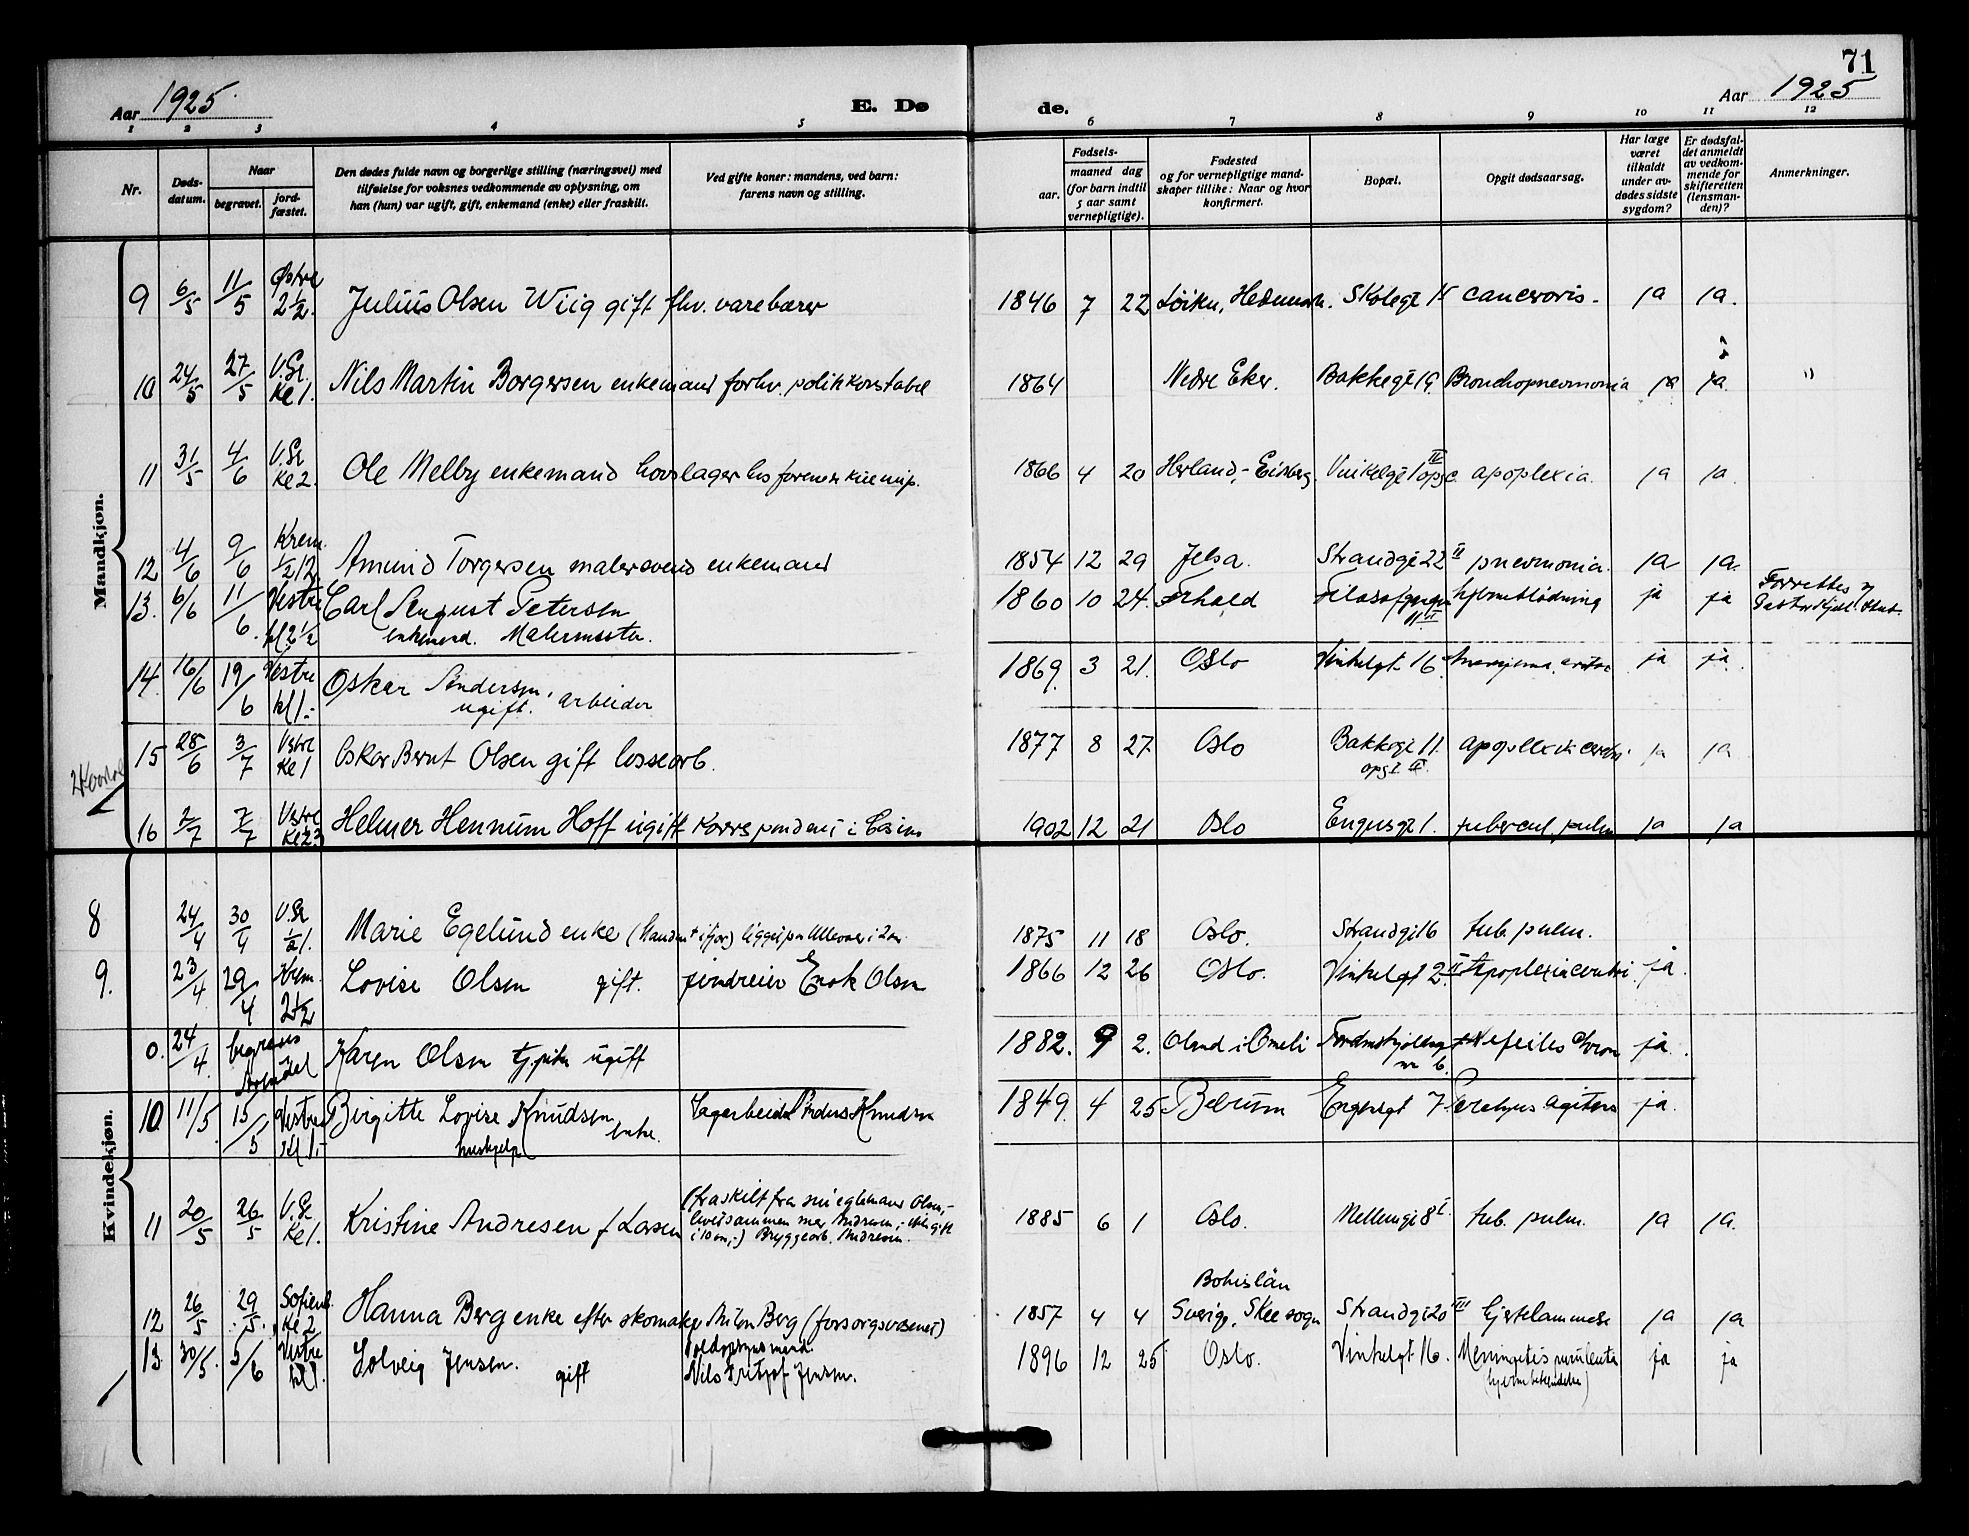 71
Aar 1925. E. Dø de. Aar 1925
1 2 3 4 5 6 7 8 9 10 11 12
Nr.
Døds-
datum.
Naar
begravet.
jord-
fæstet.
Den dødes fulde navn og borgerlige stilling (næringsvei) med
tilføielse for voksnes vedkommende av oplysning, om
han (hun) var ugift, gift, enkemand (enke) eller fraskilt.
Ved gifte koner: mandens, ved barn:
farens navn og stilling.
Fødsels-
aar.
maaned dag
(for barn indtil
5 aar samt
vernepligtige).
Fødested
og for vernepligtige mand-
skaper tillike: Naar og hvor
konfirmert.
Bopæl.
Opgit dødsaarsag.
Har læge
været
tilkaldt
under av-
dødes sidste
sygdom?
Er dødsfal-
det anmeldt
av vedkom-
mende for
skifteretten
(lensman-
den)?
Anmerkninger.
Mandkjøn.
9 6/5 11/5 Østre 2 1/2. Julius Olsen Wiig gift fhv. varebærer 1846 7 22 Løiten, Hedemark. Skolegt 15 cancer oris. ja ja.
10 24/5 27/5 V.Gr. Kl 1. Nils Martin Borgersen enkemand forhv. politikonstabel 1864 Nedre Eker. Bakkegt 19. Bronchopneumonia ja ja. "
11 31/5 4/6 V.Gr Kl 2. Ole Melby enkemand hovslager 1866 4 20 Herland, - Eidsberg Vinkelgt 1 opg c IV apoplexia. ja ja.
12 4/6 9/6 Krem. 1/2 12 Amund Torgersen malersvend enkemand 1854 12 29 Jelsa. Strandgt 22 II pneumonia. ja ja.
13. 6/6 11/6. Vestre kl. 2 1/2 Carl August Petersen 1860 10 24. Frhald Filosofgangen 11 VI hjerneblødning ja ja Forrettes af
enkemand. Malermester.
14. 16/6 19/6 Vestre kl 1.- Oskar Andersen, arbeider 1869. 3 21. Oslo Vinkelgt. 16. ja ja.
ugift.
15 28/6 3/7 Vstre Kl 1 Oskar Bernt Olsen gift lossearb. 1877 8 27. Oslo Bakkegt 11. opg I II. apoplexia cerebri. ja ja
16 2/7 7/7 Vstre Kl 2 1/2 Helmer Hennum Hoff ugift Korrespondent i 1902 12 21 Oslo Engensgt 1. tubercul. pulm ja ja
Kvindekjøn.
8 24/4 30/4 V.Gr 1/2 1. Marie Egelund enke 1875 11 18 Oslo. Strandgt 16 tub. pulm.
9. 23/4 29/4 Krem. 2 1/2 Lovise Olsen gift. Enok Olsen 1866 12 26 Oslo. Vinkelgt 2. II Apoplexia cerebri. ja.
0. 24/4. begraves i Arendal Karen Olsen tj.pike ugift 1882. 9 2. Oland i Omli nr 6. ja.
10 11/5. 15/5 Vestre Kl 1.- Birgitte Lovise Knudsen enke. Sagarbeider Anders Knudsen 1849. 4 25 Bærum Engensgt 7 Paralysis agitans ja.
11 20/5 26/5 V.Gr Kl 1. Kristine Andresen f Larsen (fraskilt fra sin egtemand Olsen,-
levet sammen med Andresen,- ikke gift
i 10 aar,-) Bryggearb. Andresen. 1885 6 1 Oslo. Mellemgt 8 I. tub. pulm. ja ja.
12 26/5 29/5. Sofienb. Kl 2 Hanna Berg enke efter skomaker Anton Berg (forsorgsvæsenet) 1857 4 4 Bohuslän
Sverige, Skee sogn Strandgt 20 III hjertelammelse ja ja
13. 30/5. 5/6 Vestre kl 1. Solveig Jensen. gift Toldopsynsmand
Nils Fritjof Jensen. 1896 12 25 Oslo. Vinkelgt. 16. Meningitis purulenta
(hjernebetændelse) ja ja